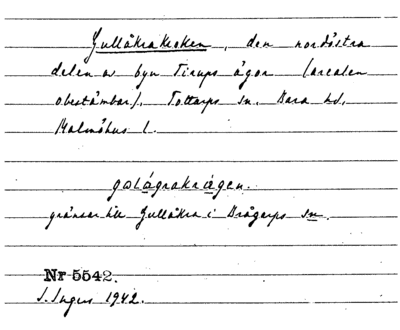 Gullåkrakroken, den nordöstra
delen av byn Tirups ägor (arealen
obestämbar), Tottarps sn. Bara hd,
Malmöhus l.
gränser till Gullåkra i Brågarps sn.
Nr 5542.
1942.